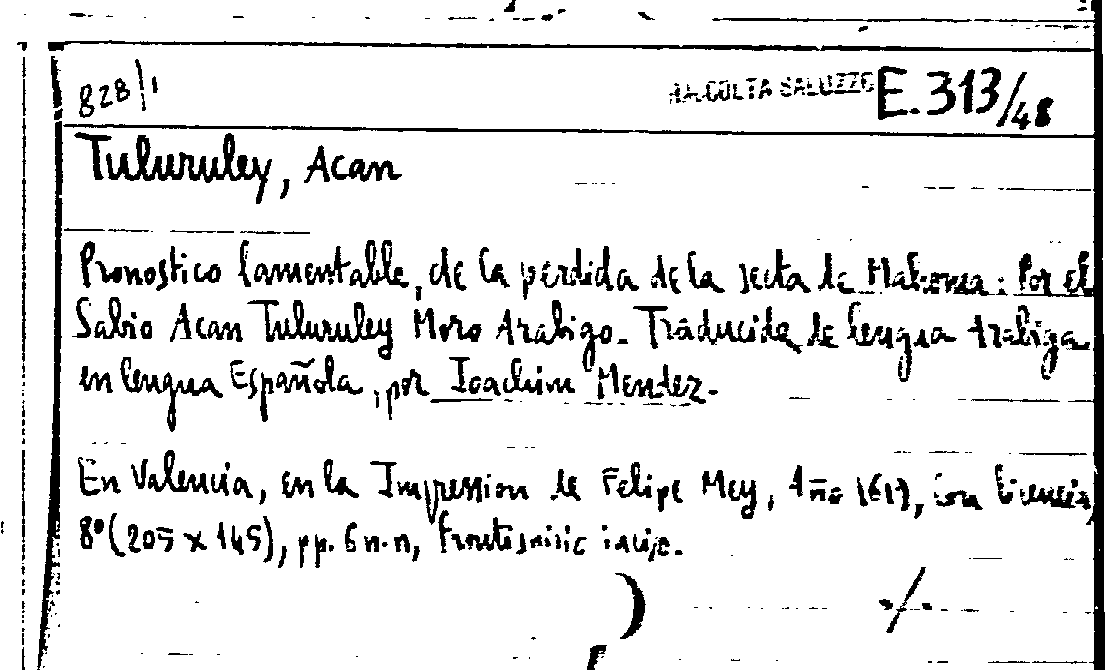 828/1
RACCOLTA SALUZZO E.313/48
Tuluruley, Acan
Pronostico lamentable, de la perdida de la secta de Mahoma: Por el
Sabio Acan Tuluruley Moro Arabigo. Traducida de lengua Arabiga
en lengua Española, por Ioachim Mendez.
En Valencia, en la Impression de Felipe Mey, Año con licencia,
8º (205 x 145), pp. 6 n.n,
./.